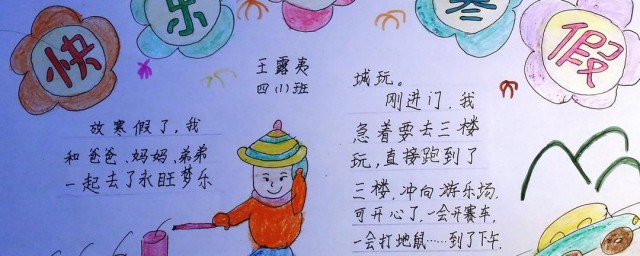 快乐寒假
王露夷
四（1）班
放寒假了，我
和爸爸、妈妈、弟弟
一起去了永旺梦乐
城玩。
刚进门，我
急着要去三楼
玩，直接跑到了
三楼，冲向游乐场.
可开心了，一会开赛车，
一会打地鼠……到了下午.